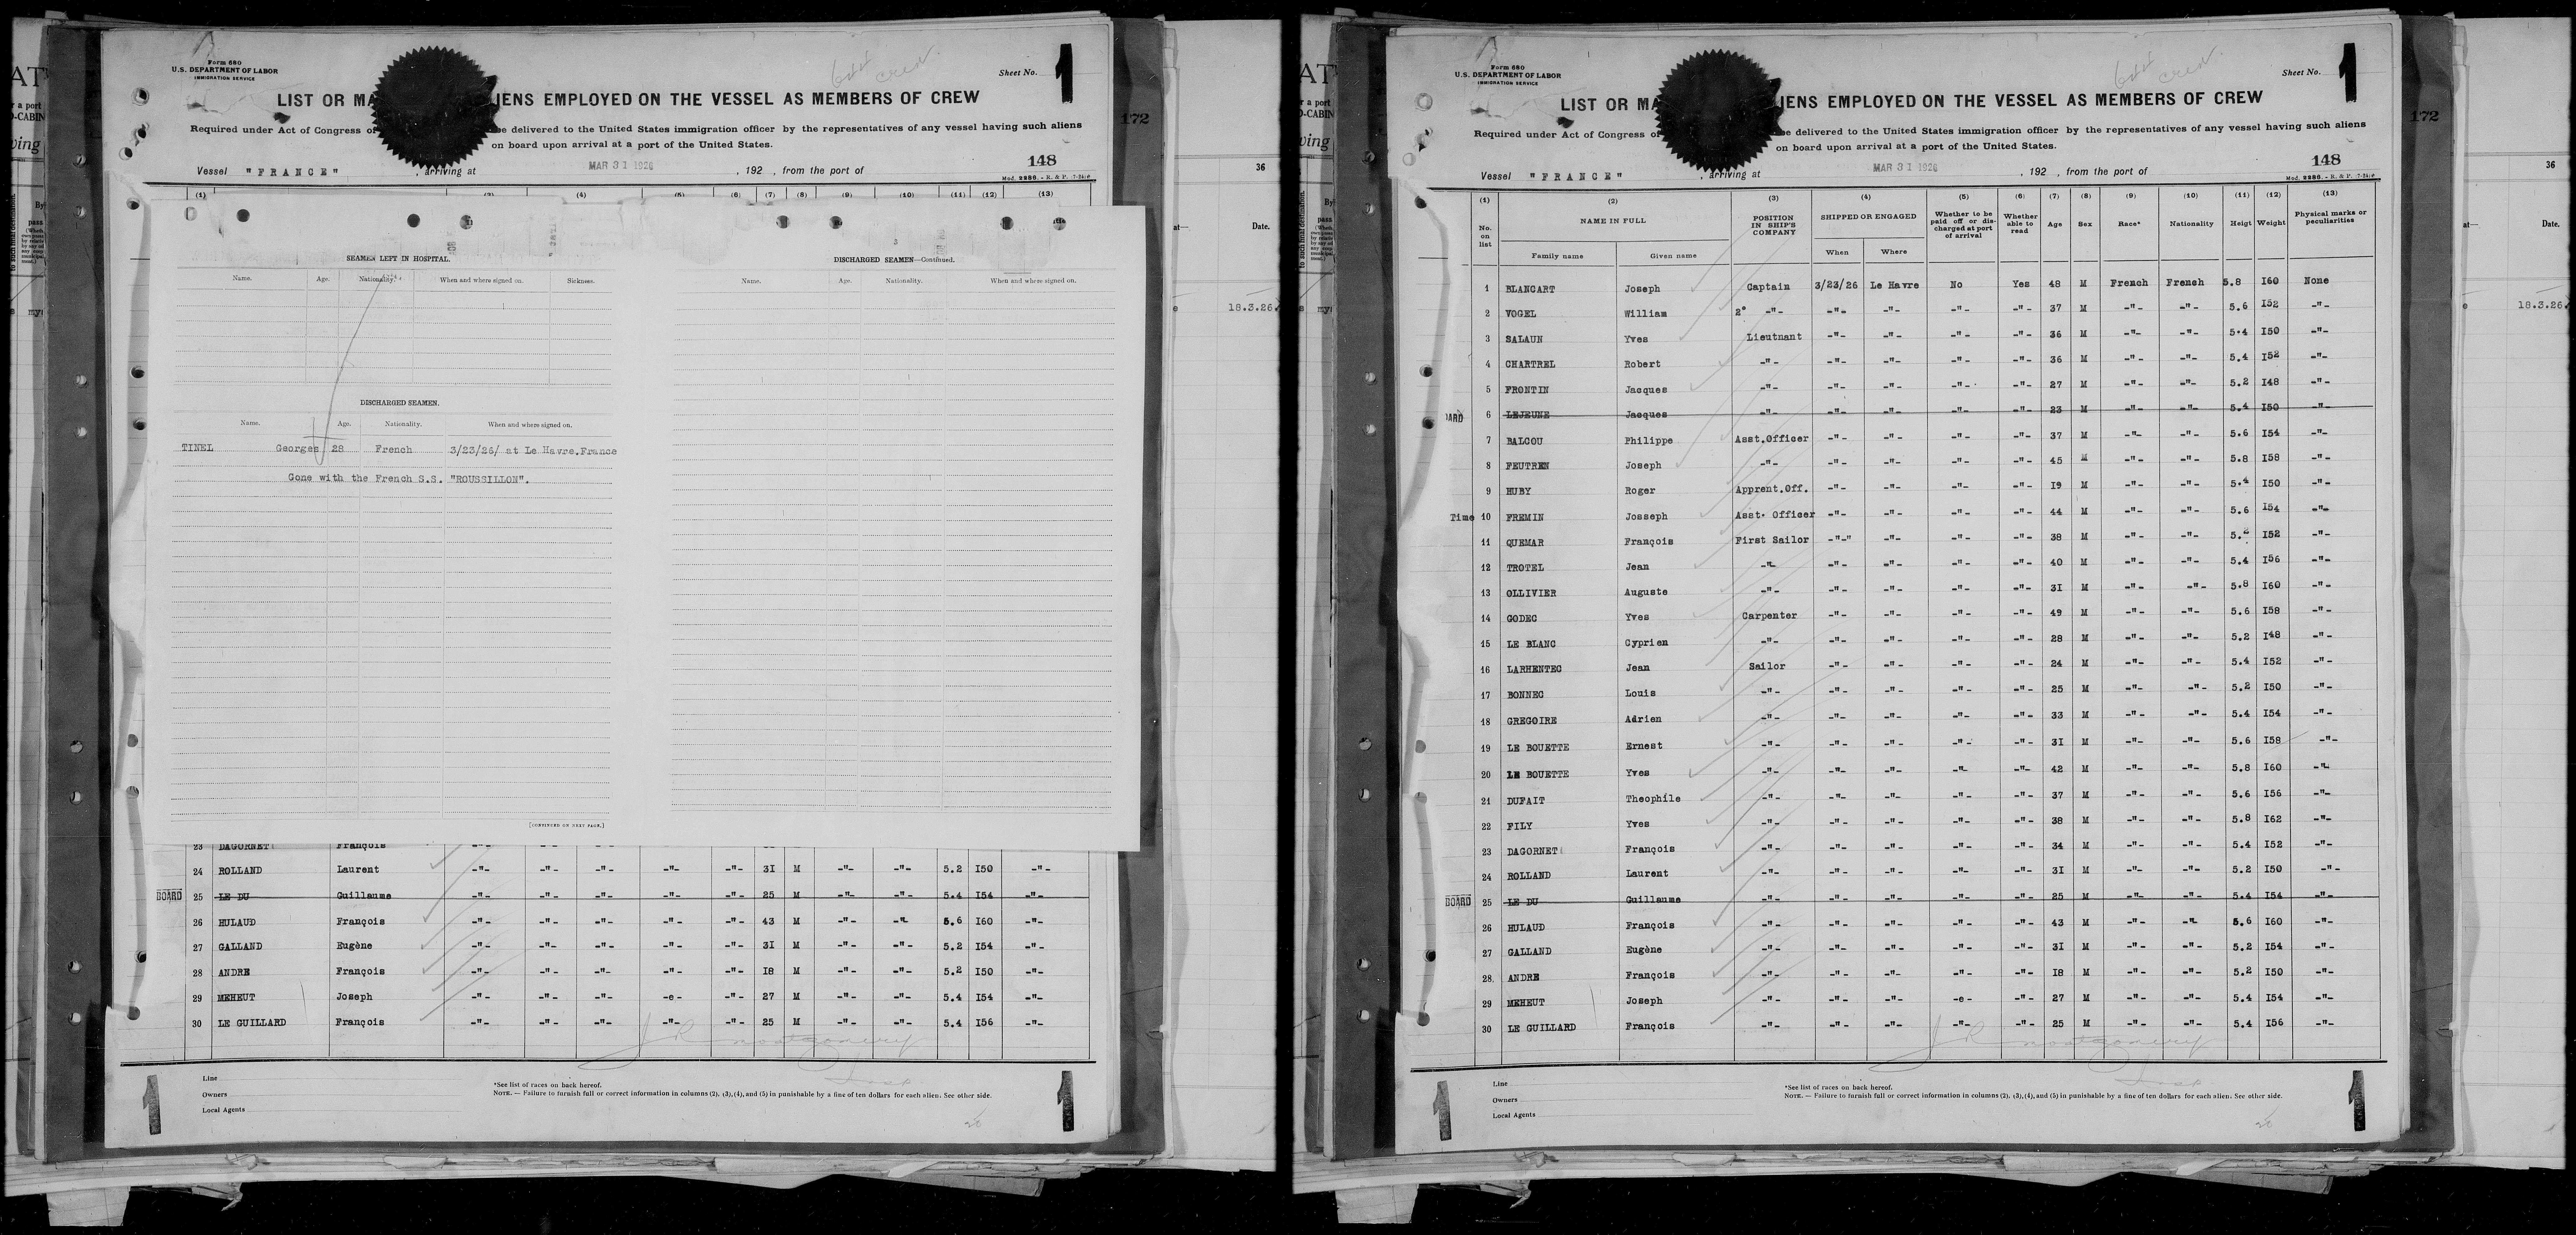 Form 680
U.S. DEPARTMENT OF LABOR
IMMIGRATION SERVICE
Sheet No. 1
LIST OR MA IENS EMPLOYED ON THE VESSEL AS MEMBERS OF CREW
Required under Act of Congress of be delivered to the United States immigration officer by the representatives of any vessel having such aliens
on board upon arrival at a port of the United States.
148
Vessel "FRANCE" , arriving at MAR 31 1926 , 192 , from the port of
Mod. 2286. - R. & P.
172
36
(1) (4) (6) (7) (8) (9) (10) (11) (12) (13)
SEAMEN LEFT IN HOSPITAL.
Name. Age. Nationality. When and where signed on. Sickness.
DISCHARGED SEAMEN.
Name. Age. Nationality. When and where signed on.
TINEL Georges 28 French 3/23/26/ at Le Havre.France
Gone with the French S.S. "ROUSSILLON".
[CONTINUED ON NEXT PAGE.]
DISCHARGED SEAMEN—Continued.
Name. Age. Nationality. When and where signed on.
Date.
18.3.26
23 DAGORNET François
24 ROLLAND Laurent -"- -"- -"- -"- -"- 3I M -"- -"- 5.2 I50 -"-
BOARD 25 LE DU Guillaume -"- -"- -"- -"- -"- 25 M -"- -"- 5.4 I54 -"-
26 HULAUD François -"- -"- -"- -"- -"- 43 M -"- -"- 5.6 I60 -"-
27 GALLAND Eugène -"- -"- -"- -"- -"- 3I M -"- -"- 5.2 I54 -"-
28 ANDRE François -"- -"- -"- -"- -"- I8 M -"- -"- 5.2 I50 -"-
29 MEHEUT Joseph -"- -"- -"- -e- -"- 27 M -"- -"- 5.4 I54 -"-
30 LE GUILLARD François -"- -"- -"- -"- -"- 25 M -"- -"- 5.4 I56 -"-
J R Montgomery
Line
Owners
Local Agents
*See list of races on back hereof.
NOTE. — Failure to furnish full or correct information in columns (2), (3), (4), and (5) in punishable by a fine of ten dollars for each alien. See other side.
1 1
Form 680
U.S. DEPARTMENT OF LABOR
IMMIGRATION SERVICE
Sheet No. 1
LIST OR MA IENS EMPLOYED ON THE VESSEL AS MEMBERS OF CREW
Required under Act of Congress of be delivered to the United States immigration officer by the representatives of any vessel having such aliens
on board upon arrival at a port of the United States.
148
Vessel "FRANCE" , arriving at MAR 31 1926 , 192 , from the port of
Mod. 2286. - R. & P.
172
36
(1) (2) (3) (4) (5) (6) (7) (8) (9) (10) (11) (12) (13)
No. on list NAME IN FULL Family name Given name POSITION IN SHIP'S COMPANY SHIPPED OR ENGAGED When Where Whether to be paid off or discharged at port of arrival Whether able to read Age Sex Race* Nationality Heigt Weight Physical marks or peculiarities
Date.
18.3.26
1 BLANCART Joseph Captain 3/23/26 Le Havre No Yes 48 M French French 5.8 I60 None
2 VOGEL William 2° -"- -"- -"- -"- -"- 37 M -"- -"- 5.6 I52 -"-
3 SALAUN Yves Lieutnant -"- -"- -"- -"- 36 M -"- -"- 5.4 I50 -"-
4 CHARTREL Robert -"- -"- -"- -"- -"- 36 M -"- -"- 5.4 I52 -"-
5 FRONTIN Jacques -"- -"- -"- -"- -"- 27 M -"- -"- 5.2 I48 -"-
6 LEJEUNE Jacques -"- -"- -"- -"- -"- 23 M -"- -"- 5.4 I50 -"-
7 BALCOU Philippe Asst.Officer -"- -"- -"- -"- 37 M -"- -"- 5.6 I54 -"-
8 FEUTREN Joseph -"- -"- -"- -"- -"- 45 M -"- -"- 5.8 I58 -"-
9 HUBY Roger Apprent.Off. -"- -"- -"- -"- I9 M -"- -"- 5.4 I50 -"-
Time 10 FREMIN Josseph Asst. Officer -"- -"- -"- -"- 44 M -"- -"- 5.6 I54 -"-
11 QUEMAR François First Sailor -"-" -"- -"- -"- 38 M -"- -"- I52 -"-
12 TROTEL Jean -"- -"- -"- -"- -"- 40 M -"- -"- 5.4 I56 -"-
13 OLLIVIER Auguste -"- -"- -"- -"- -"- 3I M -"- -"- 5.8 I60 -"-
14 GODEC Yves Carpenter -"- -"- -"- -"- 49 M -"- -"- 5.6 I58 -"-
15 LE BLANC Cyprien -"- -"- -"- -"- -"- 28 M -"- -"- 5.2 I48 -"-
16 LARHENTEC Jean Sailor -"- -"- -"- -"- 24 M -"- -"- 5.4 I52 -"-
17 BONNEC Louis -"- -"- -"- -"- -"- 25 M -"- -"- 5.2 I50 -"-
18 GREGOIRE Adrien -"- -"- -"- -"- -"- 33 M -"- -"- 5.4 I54 -"-
19 LE BOUETTE Ernest -"- -"- -"- -"- -"- 3I M -"- -"- 5.6 I58 -"-
20 LE BOUETTE Yves -"- -"- -"- -"- -"- 42 M -"- -"- 5.8 I60 -"-
21 DUFAIT Theophile -"- -"- -"- -"- -"- 37 M -"- -"- 5.6 I56 -"-
22 FILY Yves -"- -"- -"- -"- -"- 38 M -"- -"- 5.8 I62 -"-
23 DAGORNET François -"- -"- -"- -"- -"- 34 M -"- -"- 5.4 I52 -"-
24 ROLLAND Laurent -"- -"- -"- -"- -"- 3I M -"- -"- 5.2 I50 -"-
BOARD 25 LE DU Guillaume -"- -"- -"- -"- -"- 25 M -"- -"- 5.4 I54 -"-
26 HULAUD François -"- -"- -"- -"- -"- 43 M -"- -"- 5.6 I60 -"-
27 GALLAND Eugène -"- -"- -"- -"- -"- 3I M -"- -"- 5.2 I54 -"-
28. ANDRE François -"- -"- -"- -"- -"- I8 M -"- -"- 5.2 I50 -"-
29 MEHEUT Joseph -"- -"- -"- -e- -"- 27 M -"- -"- 5.4 I54 -"-
30 LE GUILLARD François -"- -"- -"- -"- -"- 25 M -"- -"- 5.4 I56 -"-
J R Montgomery
Line
Owners
Local Agents
*See list of races on back hereof.
NOTE. — Failure to furnish full or correct information in columns (2), (3), (4), and (5) in punishable by a fine of ten dollars for each alien. See other side.
1 1